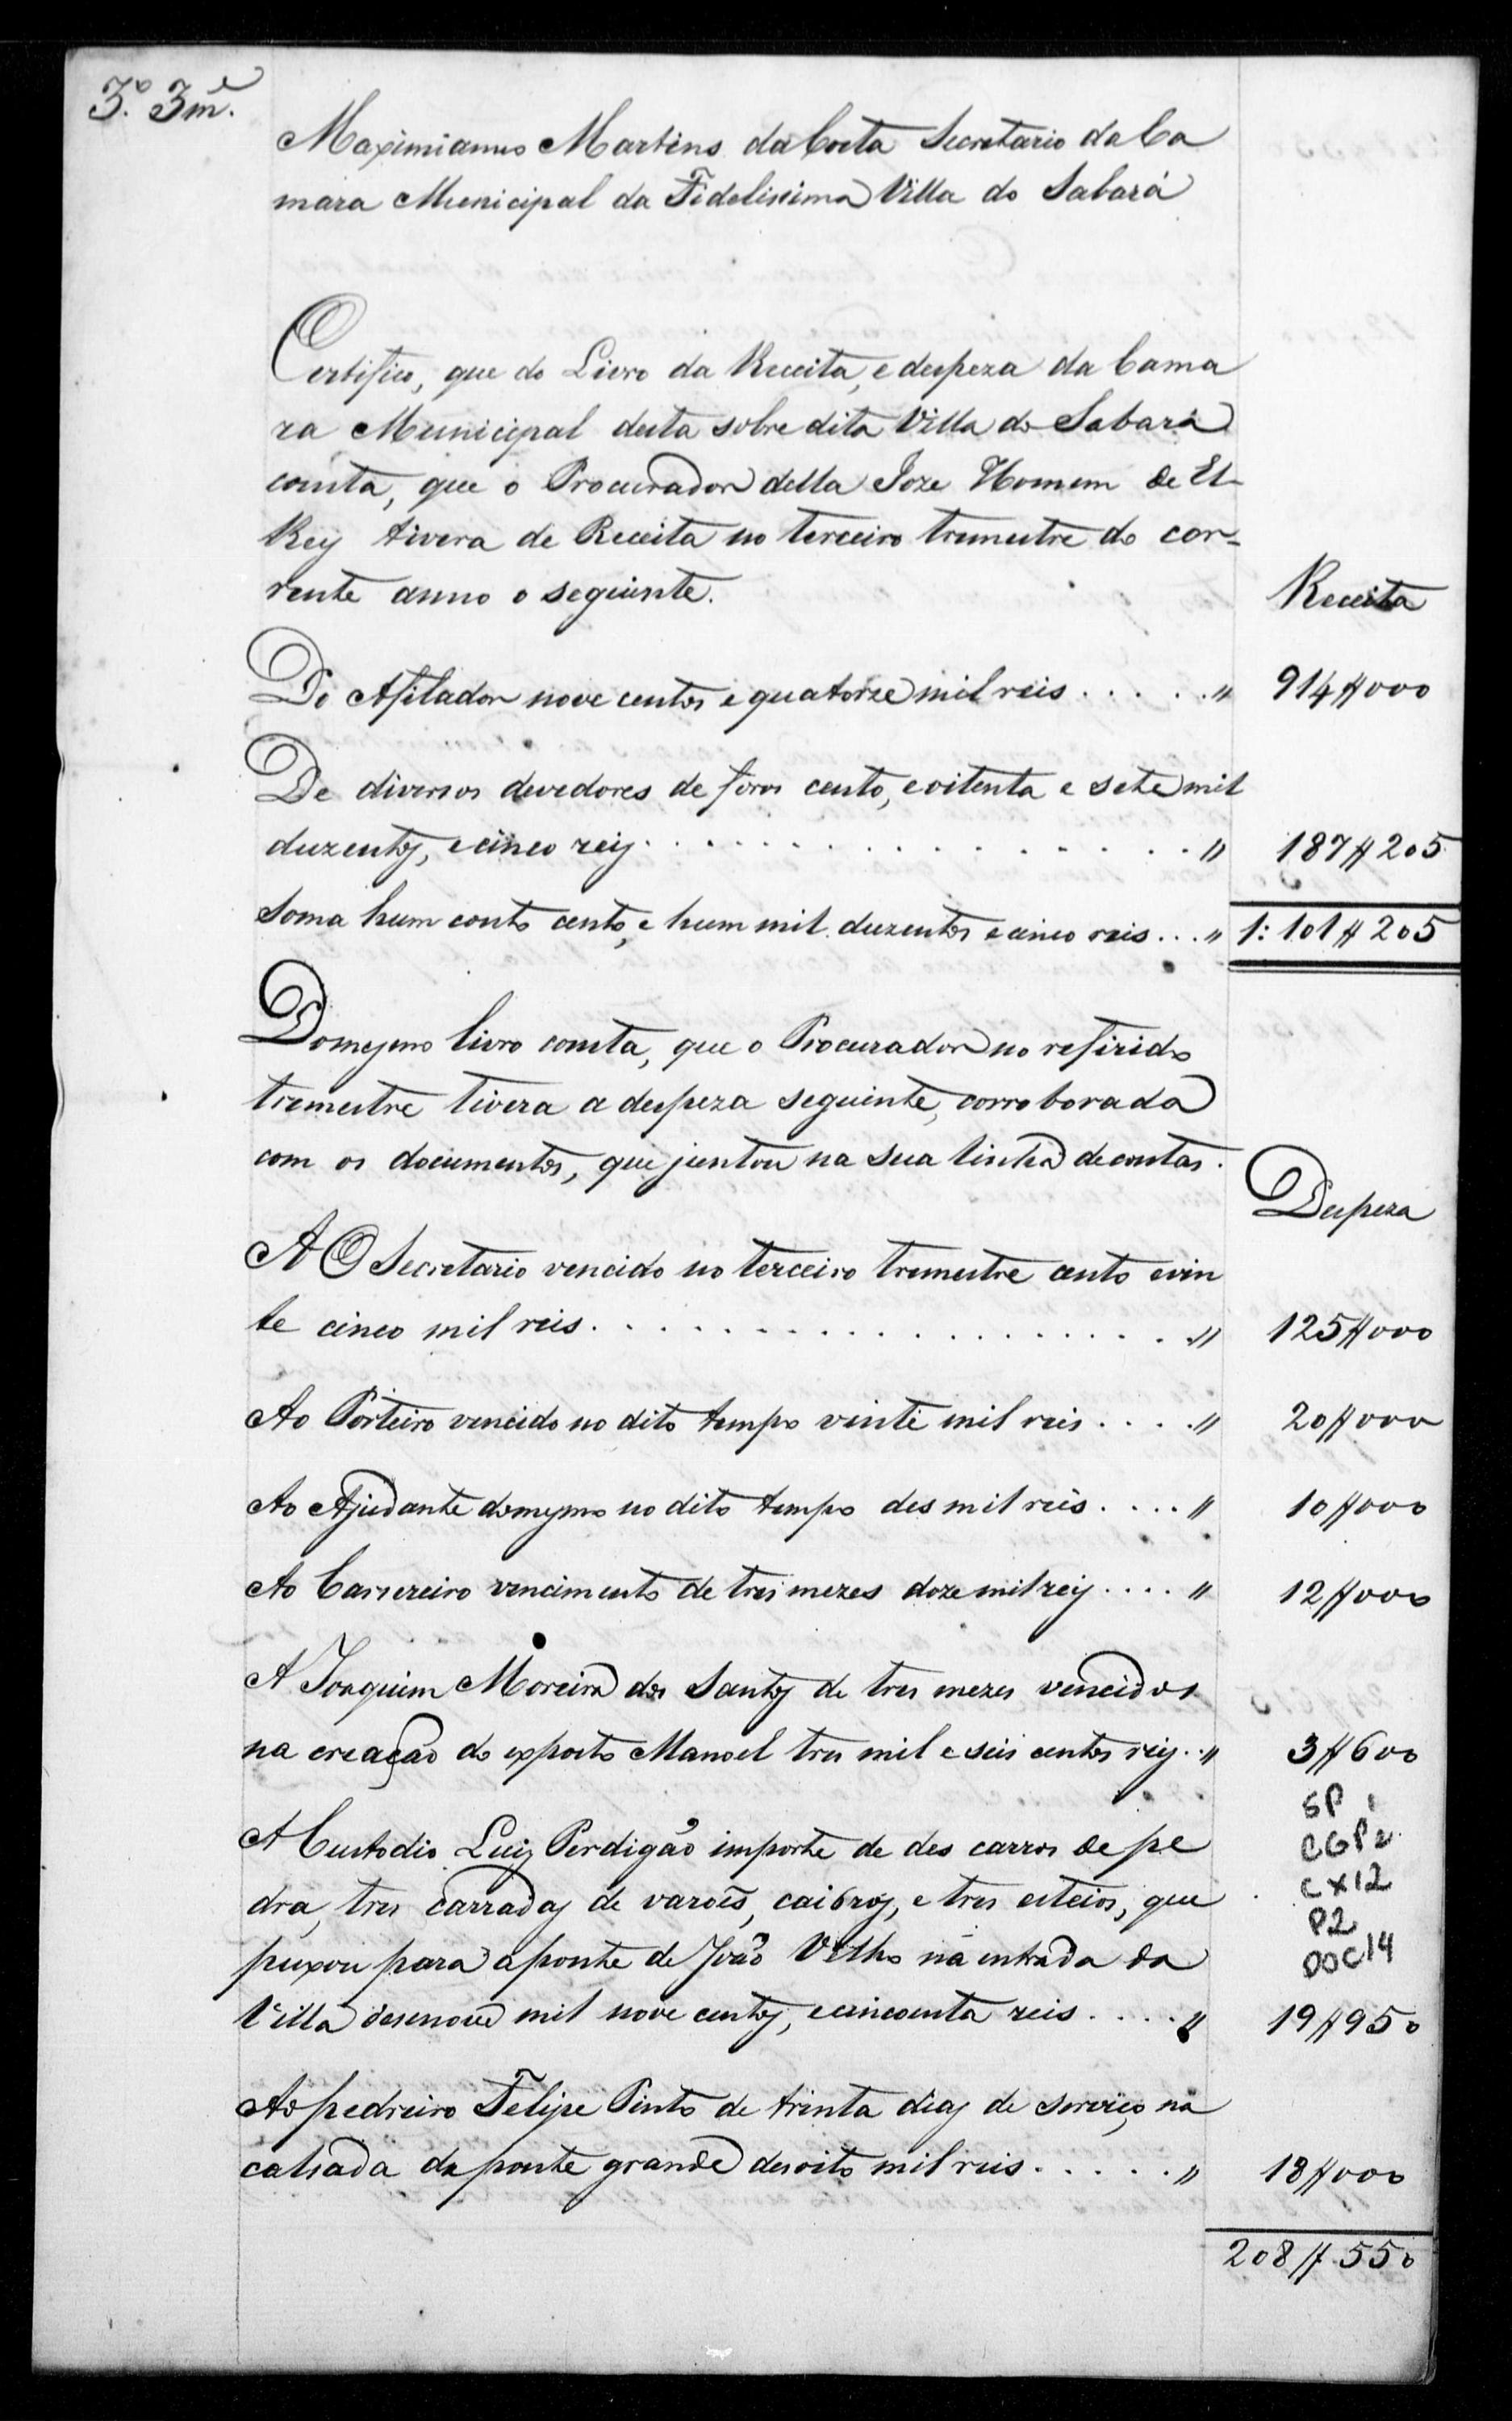 3.º 3m.e
Maximianno Martins da Costa Secretario da Ca
mara Municipal da Fidelissima Villa do Sabará
Certifico, que do Livro da Receita, e despeza da Cama
ra Municipal desta sobre dita Villa do Sabará
consta, que o Procurador della Joze Homem de El-
Rey tivera de Receita no terceiro trimestre do cor-
rente anno o seguinte.
Receita
Do Afilador nove centos e quatorze mil reis . . . . . " 914$000
De diversos devedores de foros cento, e oitenta e sete mil
duzentos, e cinco reis . . . . . . . . . . . . . . . . " 187$205
Soma hum conto cento, e hum mil duzentos e cinco reis . . . " 1:101$205
Do mesmo livro consta, que o Procurador no referido
trimestre tivera a despeza seguinte, corroborada
com os documentos, que juntou na sua linha de contas.
Despeza
AO Secretario vencido no terceiro trimestre cento e vin
te cinco mil reis . . . . . . . . . . . . . . . . . . " 125$000
Ao Porteiro vencido no dito tempo vinte mil reis . . . . " 20$000
Ao Ajudante do mesmo no dito tempo des mil reis . . . . " 10$000
Ao Carsereiro vencimento de tres mezes doze mil reis . . . . " 12$000
A Joaquim Moreira dos Santos de tres mezes vencidos
na creação do exposto Manoel tres mil e seis centos reis . . " 3$600
SP 1
CGP2
CX12
P2
DOC14
A Custodio Luiz Perdigão importe de des carros de pe
dra, tres carradas de varoẽs, caibros, e tres esteios, que
puxou para a ponte de João Velho na entrada da
Villa desenove mil nove centos, e cincoenta reis . . . . " 19$950
Ao pedreiro Felipe Pinto de trinta dias de serviço na
calsada da ponte grande desoito mil reis . . . . . " 18$000
208$550